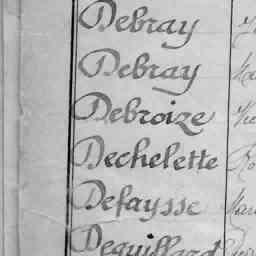 Debray
Debray
Debroize
Dechelette
Defaysse
Deguillard